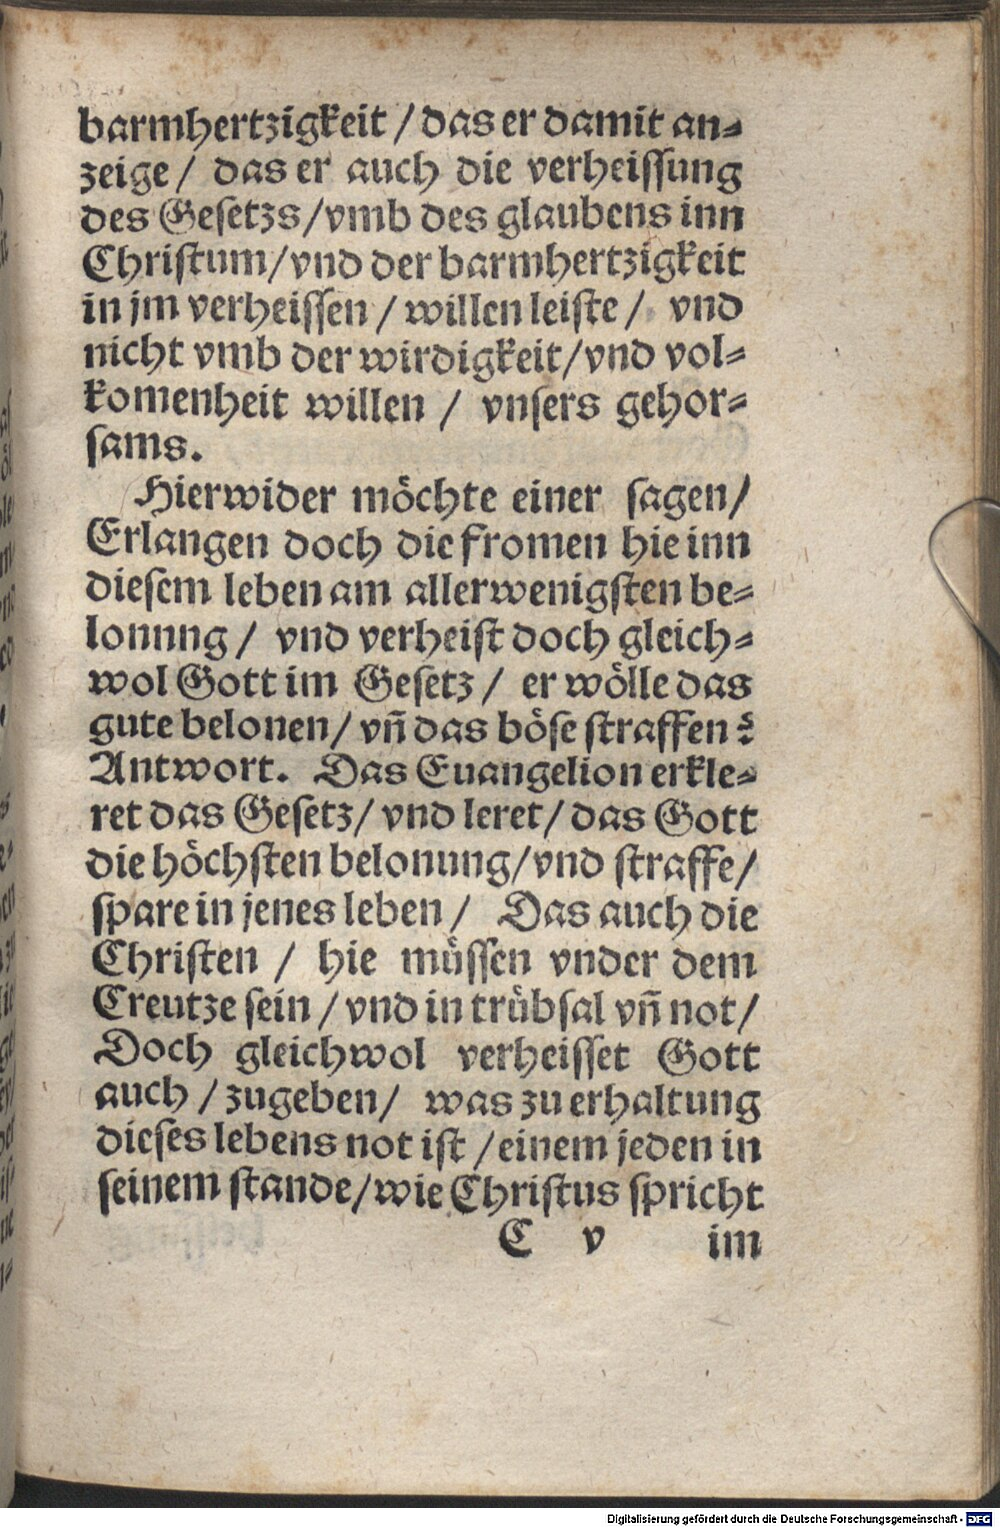 barmhertzigkeit / das er damit an⸗
zeige / das er auch die verheissung
des Gesetzs / vmb des glaubens inn
Christum / vnd der barmhertzigkeit
in jm verheissen / willen leiste / vnd
nicht vmb der wirdigkeit / vnd vol⸗
komenheit willen / vnsers gehor⸗
sams.
Hierwider möchte einer sagen /
Erlangen doch die fromen hie inn
diesem leben am allerwenigsten be⸗
lonung / vnd verheist doch gleich⸗
wol Gott im Gesetz / er wölle das
gute belonen / vñ das böse straffen ?
Antwort. Das Euangelion erkle⸗
ret das Gesetz / vnd leret / das Gott
die höchsten belonung / vnd straffe /
spare in jenes leben / Das auch die
Christen / hie müssen vnder dem
Creutze sein / vnd in trübsal vñ not /
Doch gleichwol verheisset Gott
auch / zugeben / was zu erhaltung
dieses lebens not ist / einem jeden in
seinem stande / wie Christus spricht
C v im
Digitalisierung gefördert durch die Deutsche Forschungsgemeinschaft - DFG